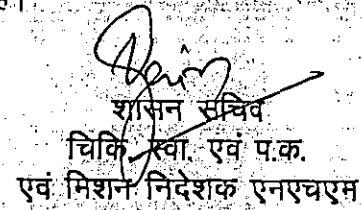 शासन सचिव
चिकि. स्वा. एवं प.क.
एवं मिशन निदेशक एनएचएम